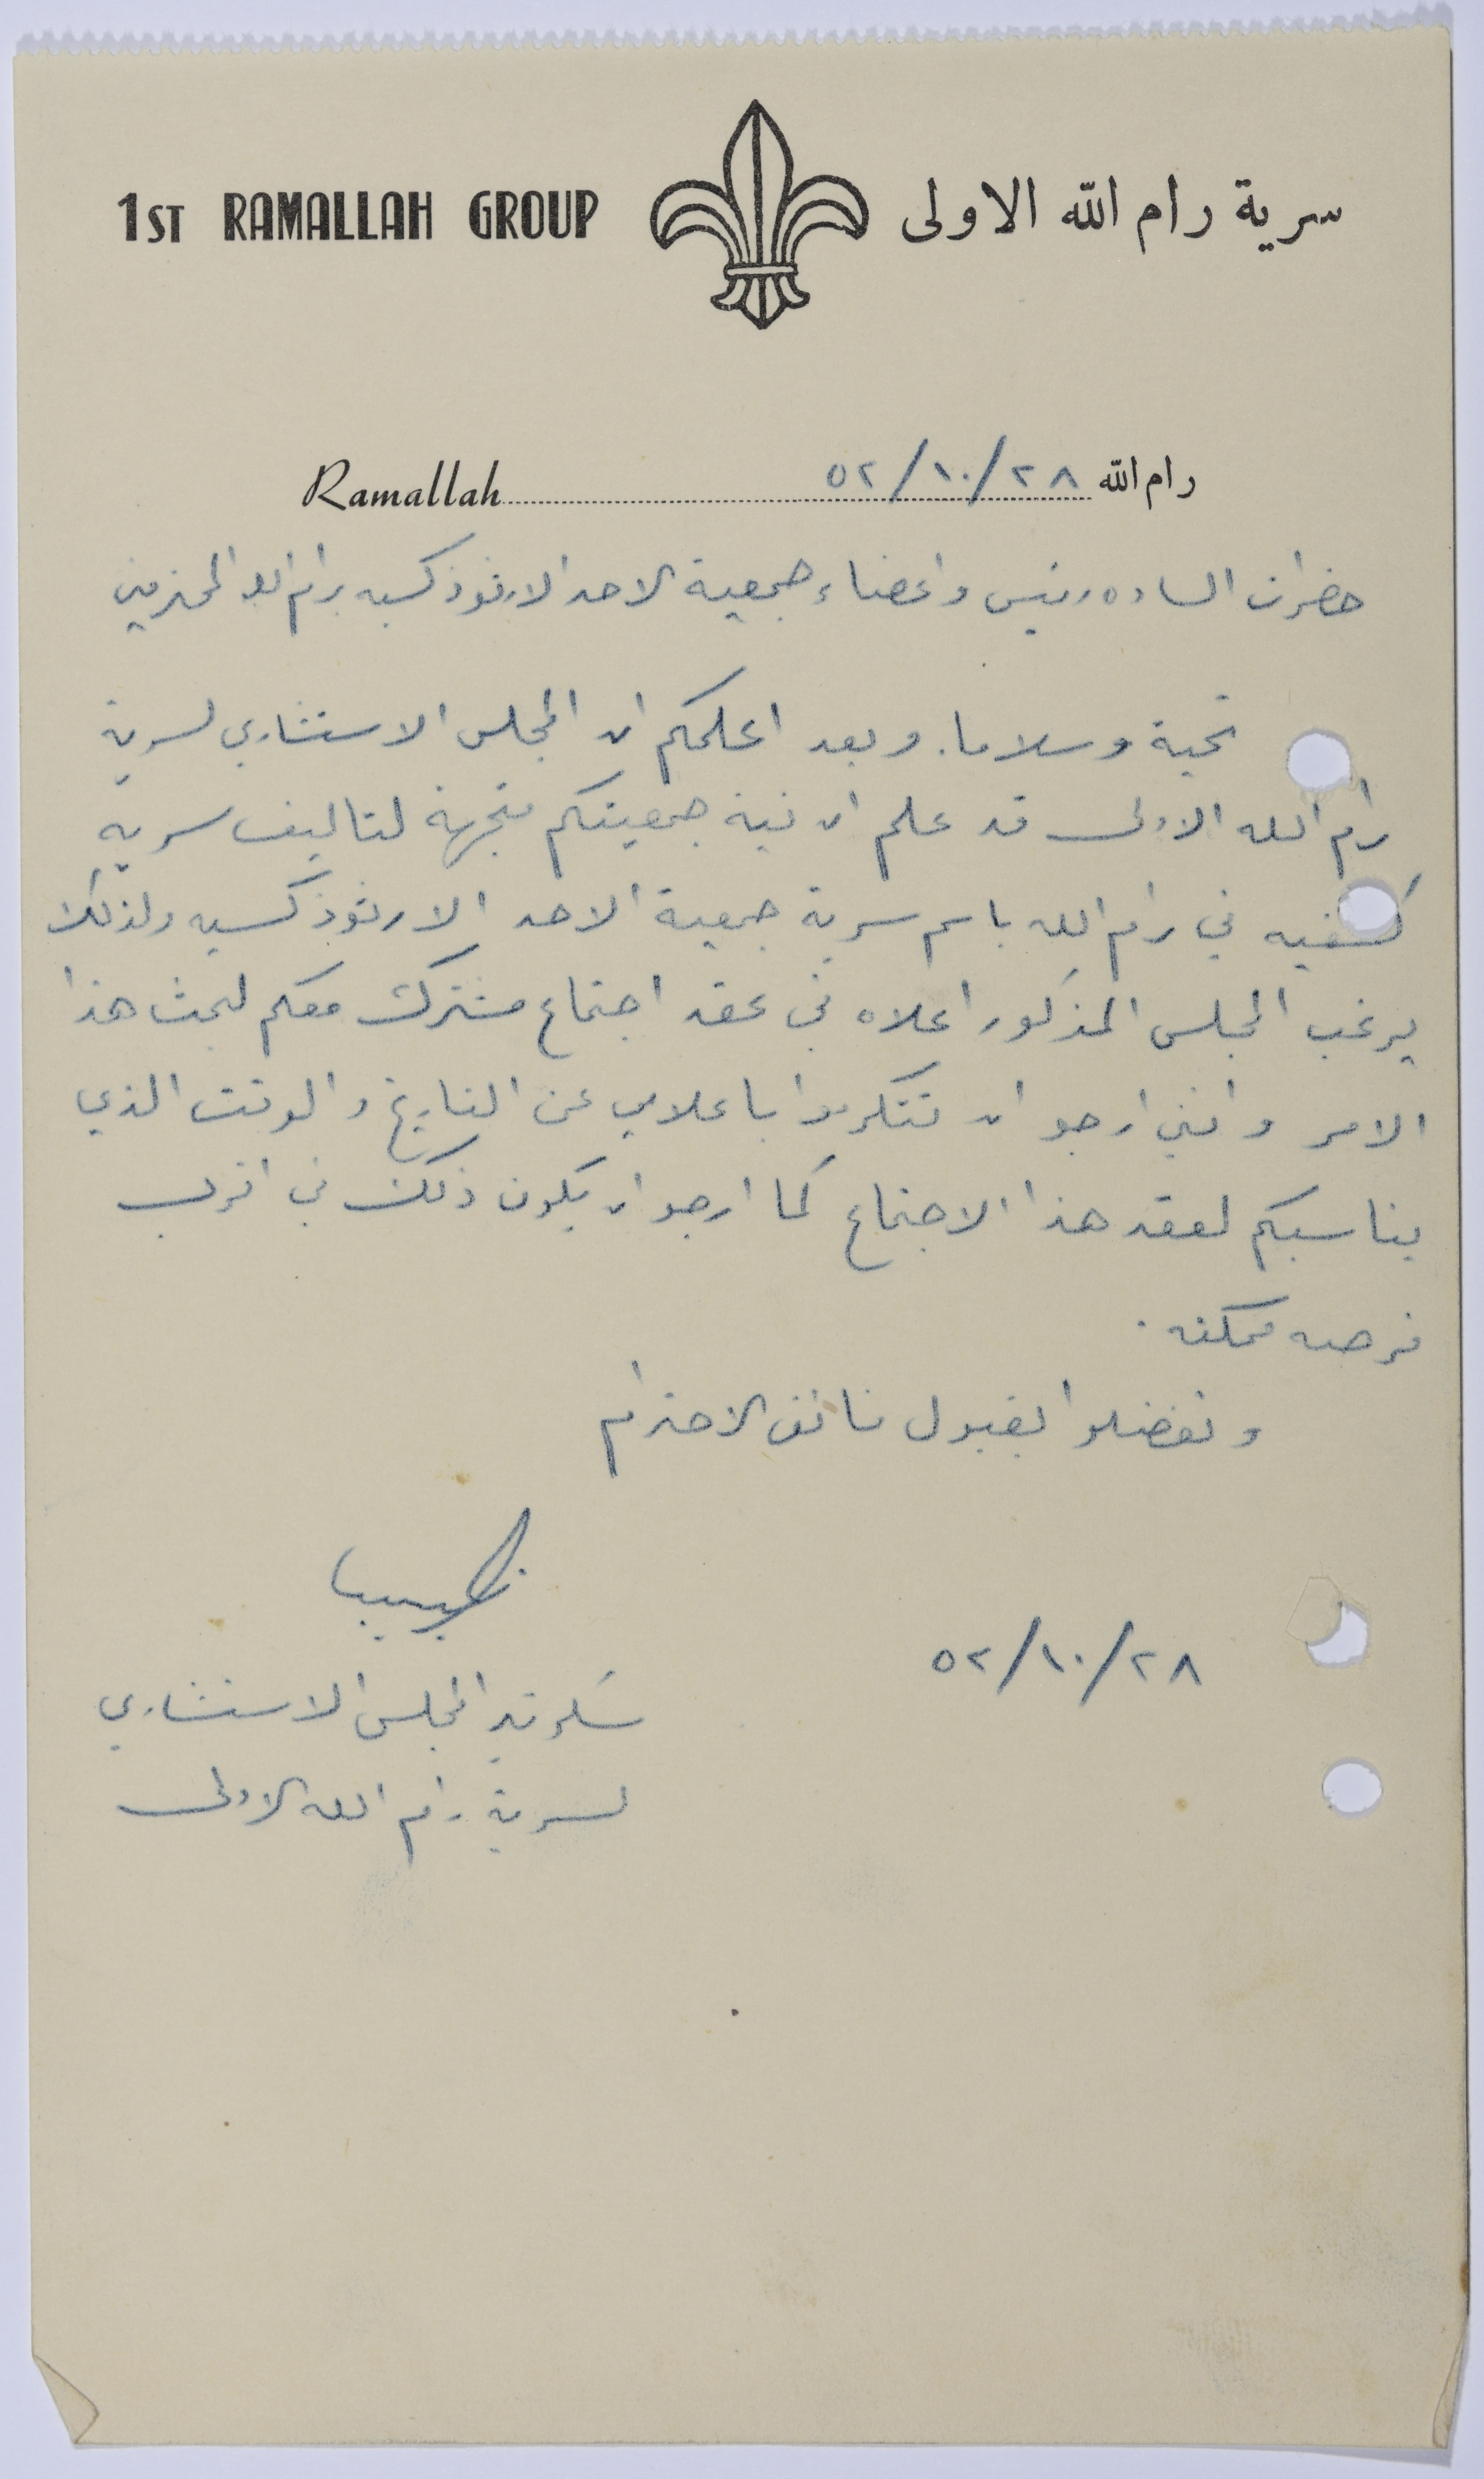 1ST RAMALLAH GROUP سرية رام الله الاولى
Ramallah رام الله ٥٢/١٠/٢٨
حضرات الساده رئيس واعضاء جمعية الاحد الارثوذكسيه برام الله المحترمين
تحية وسلاما. وبعد اعلمكم ان المجلس الاستشاري لسرية
رام الله الاولى قد علم ان نية جمعيتكم متجهة لتاليف سرية
كشفيه في رام الله باسم سرية جمعية الاحد الارثوذكسيه ولذلك
يرغب المجلس المذكور اعلاه في عقد اجتماع مشترك معكم لبحث هذا
الامر وانني ارجو ان تتكرموا باعلامي عن التاريخ والوقت الذي
يناسبكم لعقد هذا الاجتماع كما ارجو ان يكون ذلك في اقرب
فرصه ممكنه .
وتفضلوا بقبول فائق الاحترام
٥٢/١٠/٢٨
سكرتير المجلس الاستشاري
لسرية رام الله الاولى